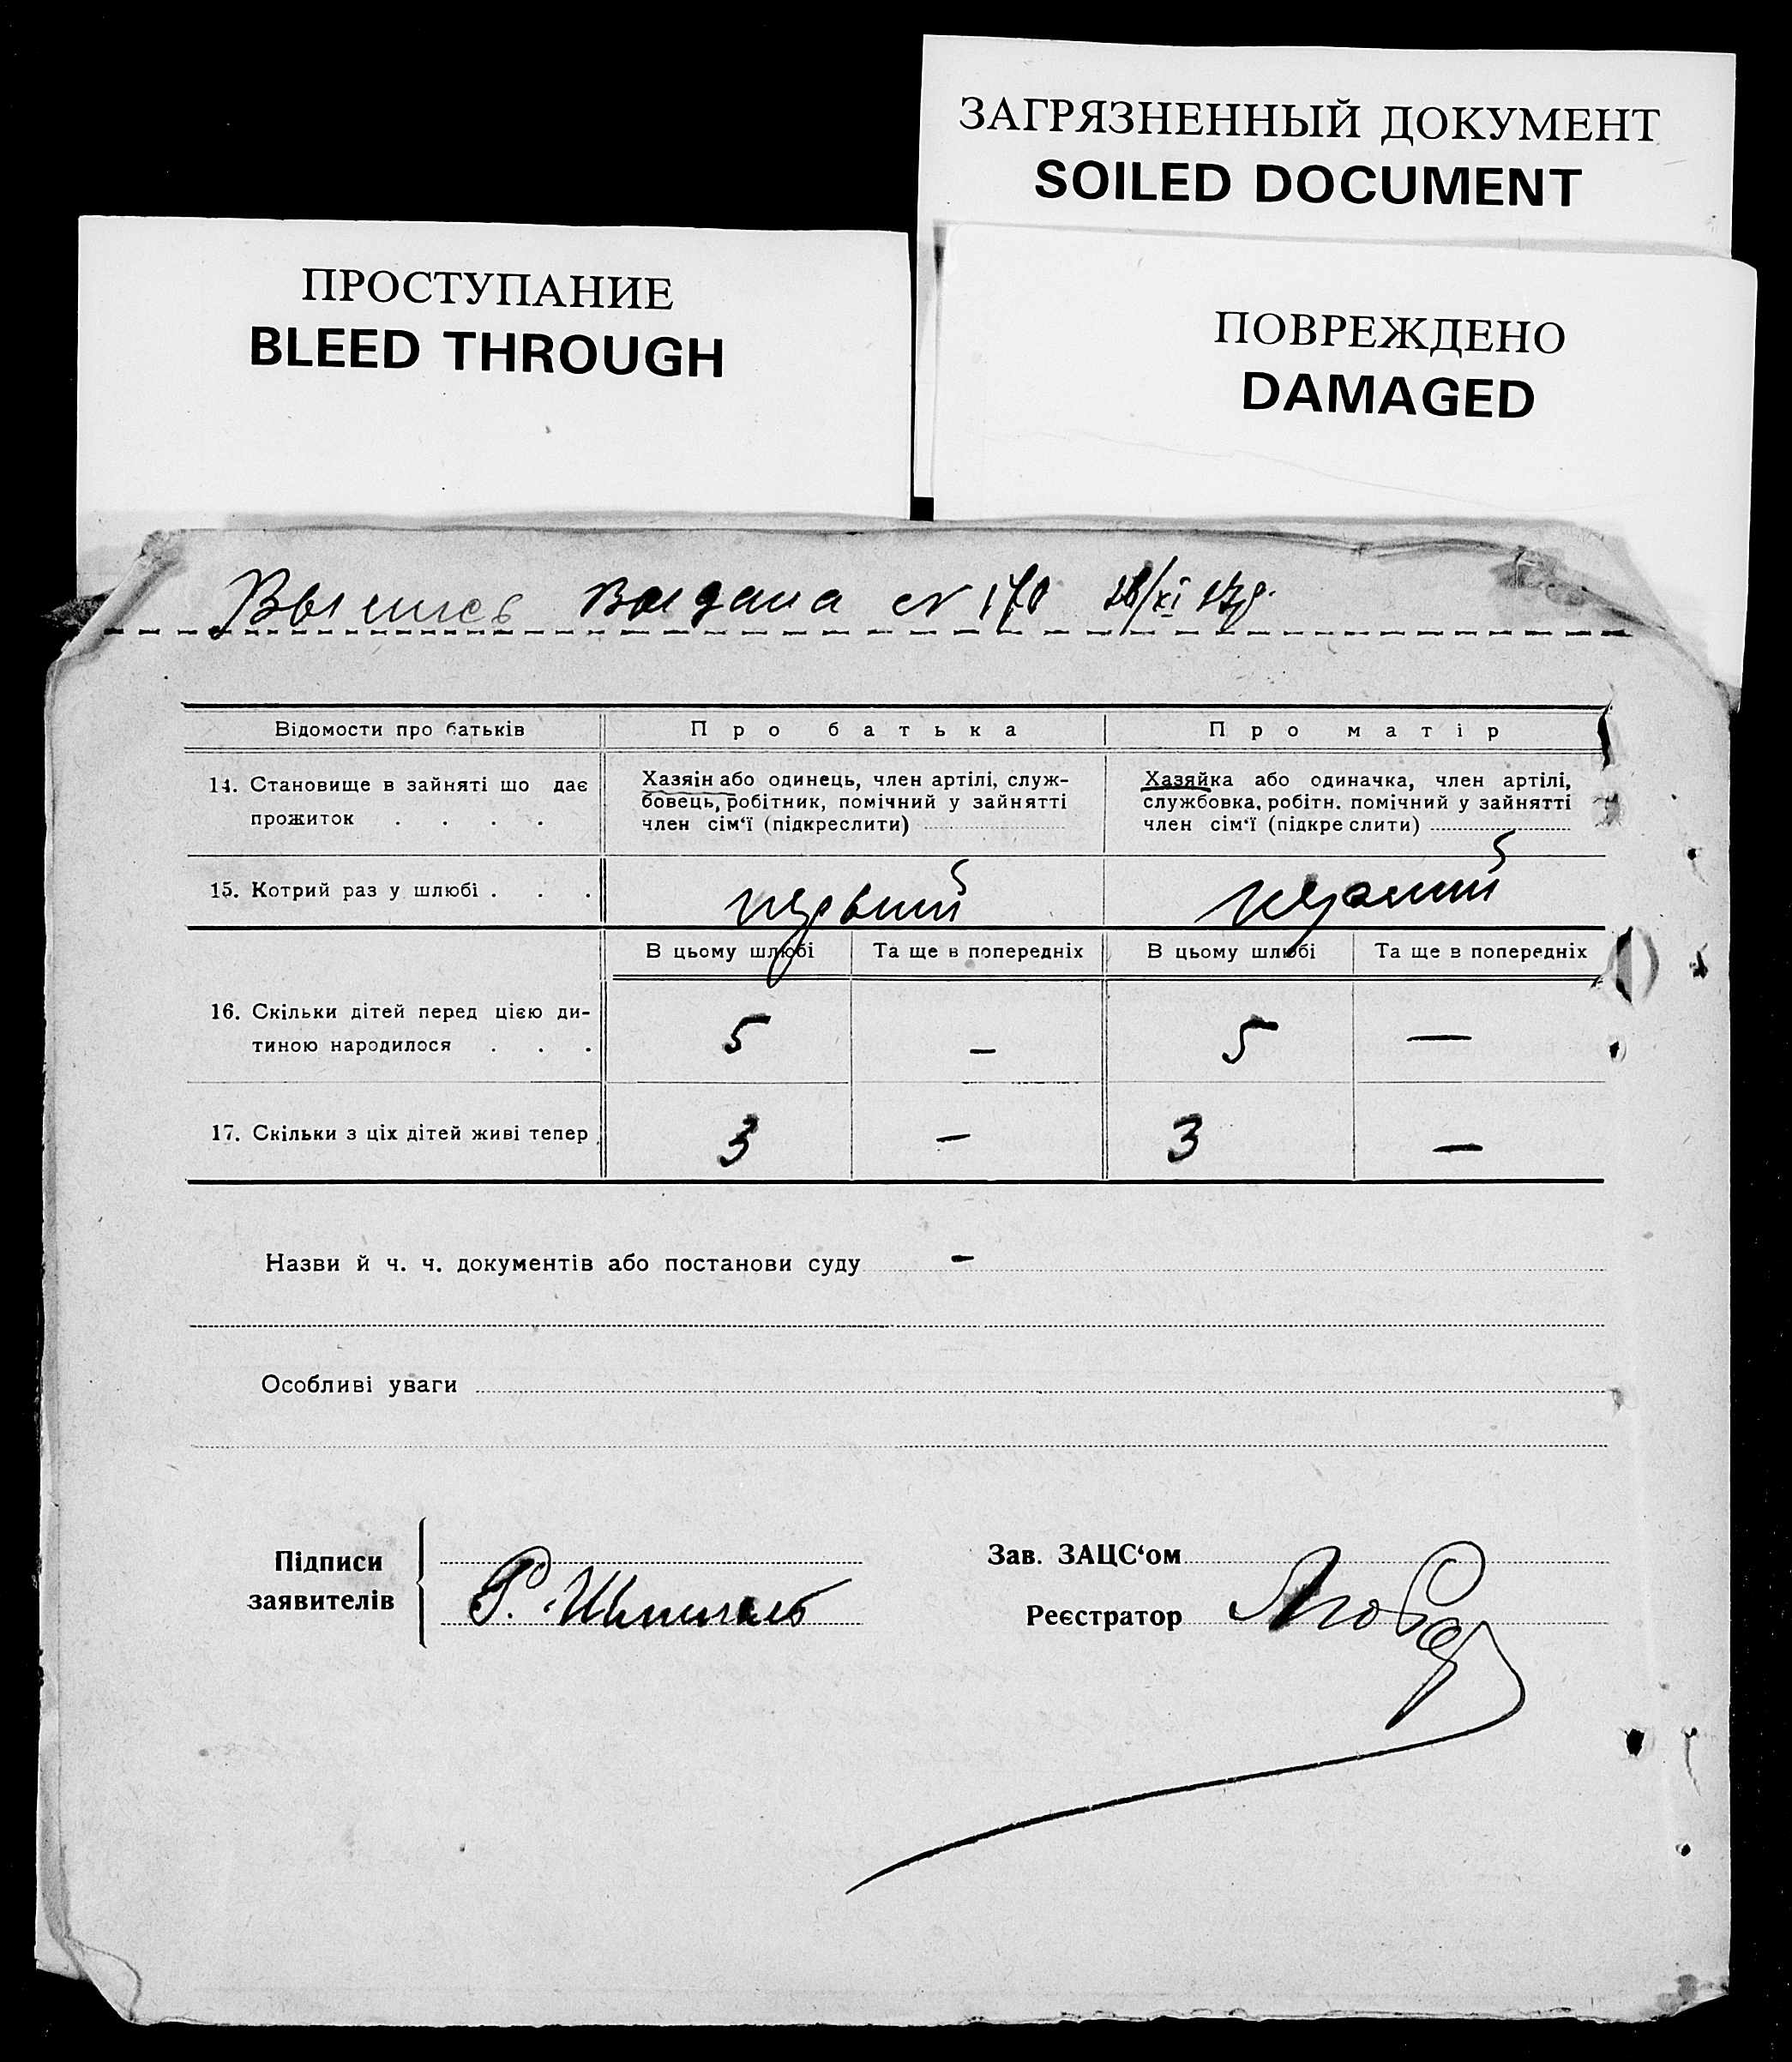 ЗАГРЯЗНЕННЫЙ ДОКУМЕНТ
SOILED DOCUMENT
ПРОСТУПАНИЕ
BLEED THROUGH
ПОВРЕЖДЕНО
DAMAGED
Выпись выдана № 170 28/XI
Відомости про батьків
Про батька
Про матір
14. Становище в зайняті що дає
прожиток . . . .
Хазяін або одинець, член артілі, служ-
бовець, робітник, помічний у зайнятті
член сім'ї (підкреслити)
Хазяйка або одиначка, член артілі,
службовка, робітн. помічний у зайнятті
член сім'ї (підкреслити)
15. Котрий раз у шлюбі . . .
первий
первий
В цьому шлюбі
Та ще в попередніх
В цьому шлюбі
Та ще в попередніх
16. Скільки дітей перед цією ди-
тиною народилося . . .
5
—
5
—
17. Скільки з ціх дітей живі тепер
3
—
3
—
Назви й ч. ч. документів або постанови суду —
Особливі уваги
Підписи
заявителів
Зав. ЗАЦС'ом
Реєстратор